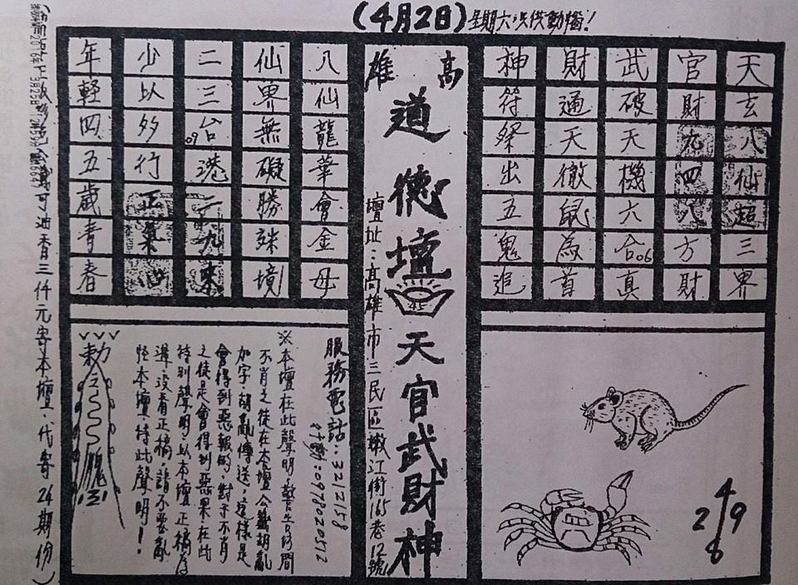 (4月2日)星期六
天玄八仙超三界
官財九四八方財
武破天機六合06真
財通天徹鼠為首
神符祭出五鬼追
4
2 9
8
高雄
道德壇
天官武財神
壇址:高雄市三民區嫩江街165巷12號
八仙龍華會金母
仙界無礙勝殊境
二三台09港一九來
少以多行正氣心
年輕四五歲青春
服務電話:3212158
行動:0978020512
※本壇在此聲明,坊間
不肖之徒在本壇公籤胡亂
加字胡亂傳送,這樣是
會得到惡報的,對于不肖
之徒是會得到惡果,在此
特別聲明,以本壇正稿為
準,沒看正稿,請不要亂
怪本壇,特此聲明!
勅
可油香三仟元寄本壇.代寄24期份)